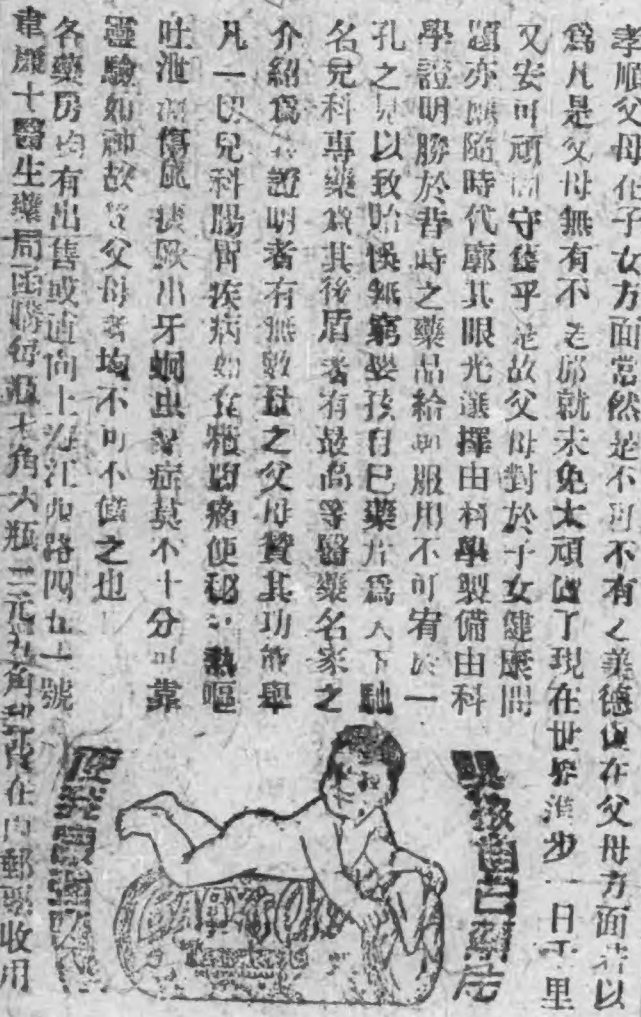 孝順父母在子女方面當然是不可不有之美德但在父母方面若以
爲凡是父母無有不老邱就未免太頑固了現在世界進步一日千里
又安可頑固守舊乎是故父母對於子女健康問
題亦應隨時代廓其眼光選擇由科學製備由科
學證明勝於昔時之藥品給與服用不可宥於一
孔之見以致貽悞無窮嬰孩自己藥片爲天下馳
名兒科專藥爲其後盾者有最高等醫藥名家之
介紹爲之證明者有無數母之父母贊其功能舉
凡一切兒科腸胃疾病如食積肚痛便秘 熱嘔
吐泄 傷風痰厥出牙蛔虫等症莫不十分可靠
靈驗如神故 父母者均不可不備之也
各藥房均有出售或直向上海江西路四五一號
韋廉士醫生藥局函購每瓶七角大瓶二元九角郵費在內郵票收用
嬰孩自己藥片